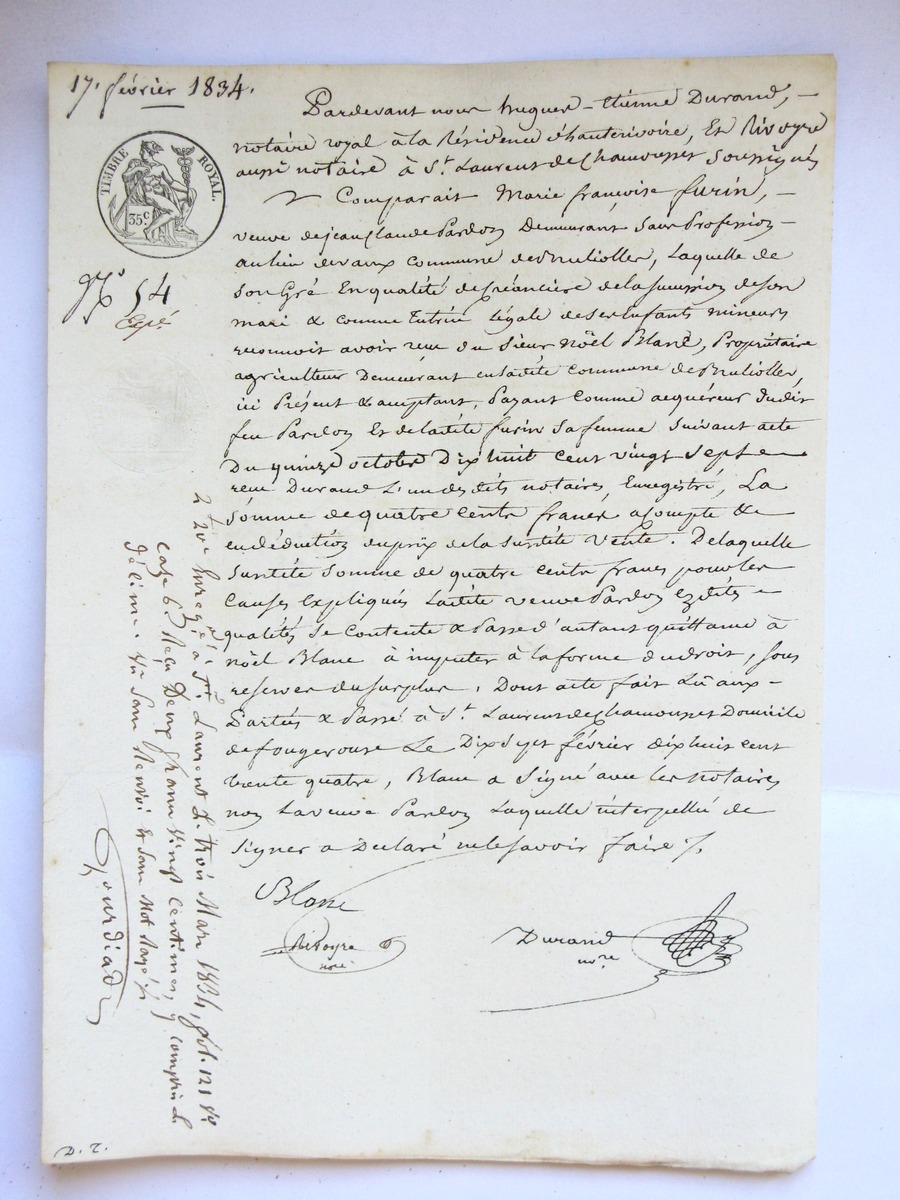 17. février 1834.
TIMBRE ROYAL.
35c
No 54
Expé
Pardevant nous hugues-Etienne Durand,
notaire royal à la Résidence d'hauterivoire, Et Rivoyre
aussi notaire à St. Laurent de Chamousset soussignés
Comparait Marie françoise furin,
veuve de jean Claude Pardon Demeurant sans Profession
au lieu de vaux commune de Brulioller, Laquelle de
son Gré En qualité de Créancière de la succession de son
mari & comme Tutrice légale de ses Enfants mineurs
reconnoit avoir reçu du sieur Nöel Blanc, Propriétaire
agriculteur Demeurant en ladite commune de Brulioller,
ici Présent & acceptant, Payant comme acquéreur dudit
feu Pardon Et de ladite furin sa femme suivant acte
Du quinze octobre Dix huit cent vingt sept
reçu Durand L'un desdits notaires, Enregistré, La
somme de quatre cents francs acompte &
en déduction du prix de la susdite vente. De laquelle
susdite somme de quatre cents francs pour les
causes Expliqués Ladite veuve Pardon Ezdites
qualités se contente & Passe d'autant quittance à
nöel Blanc à imputer à la forme du droit, sous
reserves du surplus. Dont acte fait Lû aux
Parties & Passé à St. Laurent de Chamousset Domicile
de fougerouse Le Dix sept février dix huit cent
trente quatre, Blanc a signé avec les notaires
non La veuve Pardon Laquelle interpellé de
signer a Déclaré ne le savoir faire
Blanc
Rivoyre
nore
Durand
nore
Enregé à St. Laurent Le trois Mars 1834, fol. 121 vo
case 6. Reçu Deux francs vingt centimes, y compris le
décime. Vû sans Renvoi Et sans Mot Rayé
D. T.